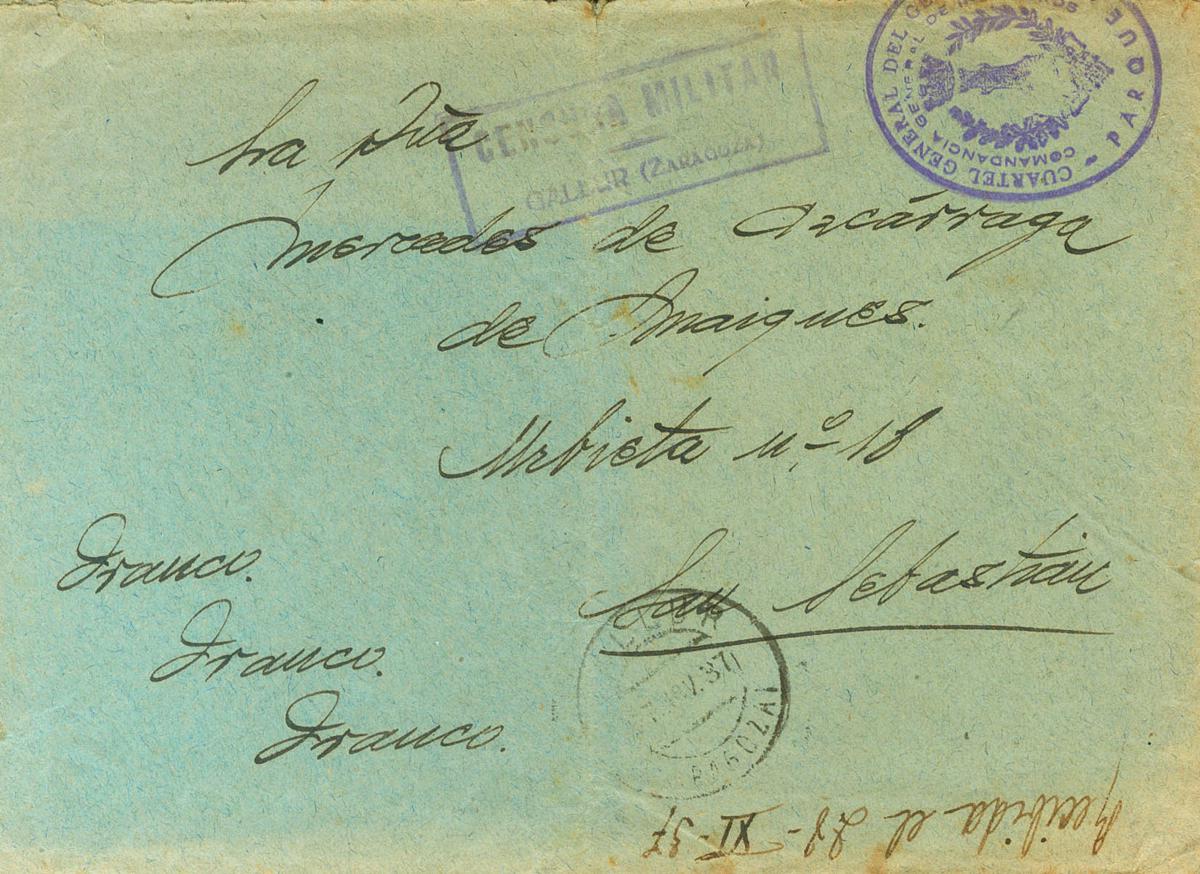 CENSURA MILITAR
GALLUR (ZARAGOZA)
CUARTEL GENERAL DEL
- PARQUE
COMANDANCIA GENERAL DE
Sra Dña
Mercedes de Azcárraga
de Maiques.
Urbieta nº 18
San Sebastián
Franco.
Franco.
Franco.
NOV. 37
RAGOZA
Recibida el 28-XI-37